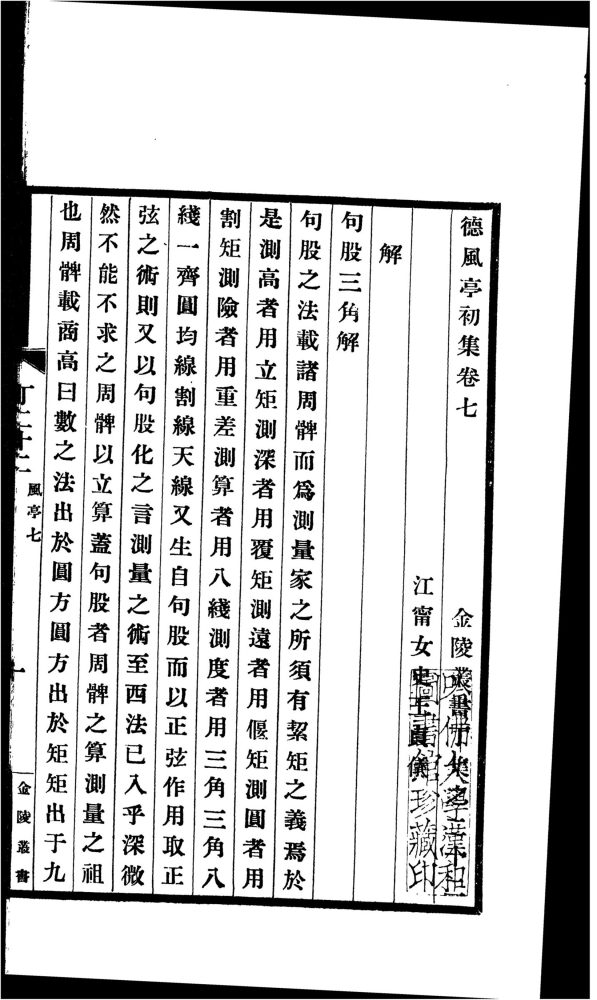 德風亭初集卷七
金陵叢書丁集之
江甯女史王貞儀
解
句股三角解
句股之法載諸周髀而爲測量家之所須有絜矩之義焉於
是測高者用立矩測深者用覆矩測遠者用偃矩測圓者用
割矩測險者用重差測算者用八綫測度者用三角三角八
綫一齊圓均線割線天線又生自句股而以正弦作用取正
弦之術則又以句股化之言測量之術至西法已入乎深微
然不能不求之周髀以立算蓋句股者周髀之算測量之祖
也周髀載商高曰數之法出於圓方圓方出於矩矩出于九
丁二十二
風亭七
一
金陵叢書
哈佛大學漢和
圖書館珍藏印